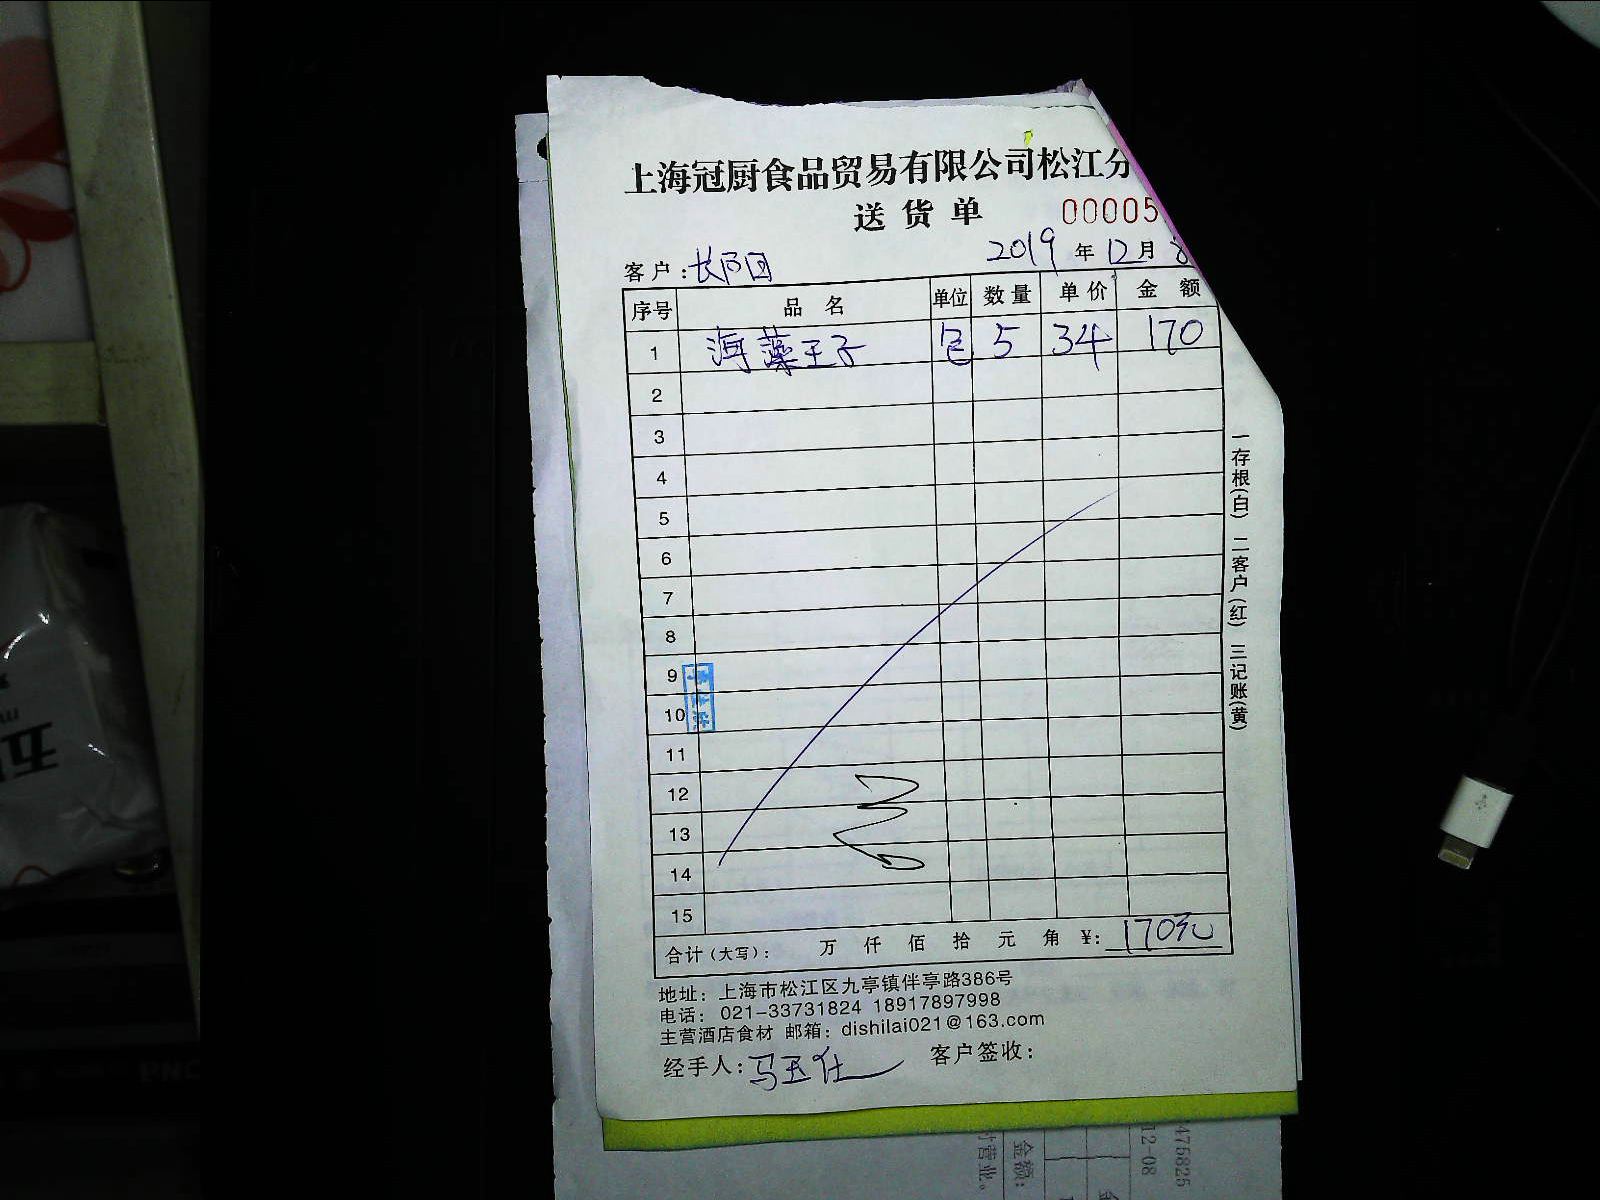 上海冠厨食品贸易有限公司松江分
送货单 00005
2019年12月8
客户:
序号 品名 单位 数量 单价 金额
1 海藻王子 包 5 34 170
2
3
4
5
6
7
8
9
10
11
12
13
14
15
合计(大写): 万 仟 佰 拾 元 角 ¥: 170元
地址: 上海市松江区九亭镇伴亭路386号
电话: 021-33731824 18917897998
主营酒店食材 邮箱: dishilai021@163.com
经手人:马玉仕 客户签收:
一存根(白) 二客户(红) 三记账(黄)
475825
12-08
金额:
时营业。
五
PNC